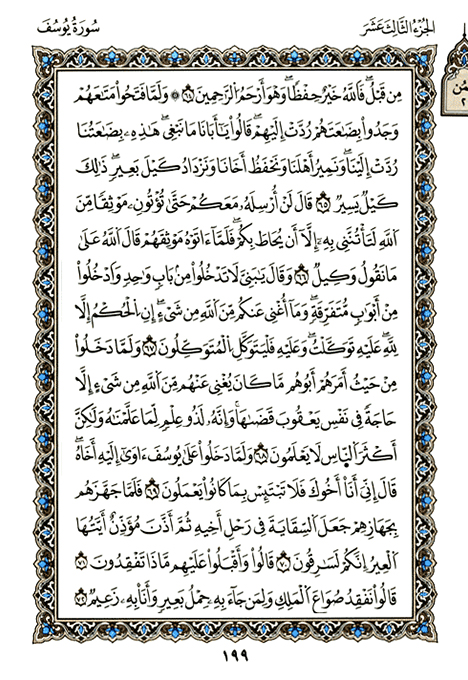 الجُزْءُ الثَّالِثَ عَشَرَ سُورَةُ يُوسُفَ
مِن قَبْلُ فَاللَّهُ خَيْرٌ حِفْظًا وَهُوَ أَرْحَمُ الرَّاحِمِينَ ٦٤ وَلَمَّا فَتَحُوا مَتَاعَهُمْ
وَجَدُوا بِضَاعَتَهُمْ رُدَّتْ إِلَيْهِمْ قَالُوا يَا أَبَانَا مَا نَبْغِي هَاذِهِ بِضَاعَتُنَا
رُدَّتْ إِلَيْنَا وَنَمِيرُ أَهْلَنَا وَنَحْفَظُ أَخَانَا وَنَزْدَادُ كَيْلَ بَعِيرٍ ذَالِكَ
كَيْلٌ يَسِيرٌ ٦٥ قَالَ لَنْ أُرْسِلَهُ مَعَكُمْ حَتَّى تُؤْتُونِ مَوْثِقًا مِّنَ
اللَّهِ لَتَأْتُنَّنِي بِهِ إِلَّا أَن يُحَاطَ بِكُمْ فَلَمَّا ءَاتَوْهُ مَوْثِقَهُمْ قَالَ اللَّهُ عَلَى
مَا نَقُولُ وَكِيلٌ ٦٦ وَقَالَ يَابَنِيَّ لَا تَدْخُلُوا مِنْ بَابٍ وَاحِدٍ وَادْخُلُوا
مِنْ أَبْوَابٍ مُّتَفَرِّقَةٍ وَمَا أُغْنِي عَنكُم مِّنَ اللَّهِ مِن شَيْءٍ إِنِ الْحُكْمُ إِلَّا
لِلَّهِ عَلَيْهِ تَوَكَّلْتُ وَعَلَيْهِ فَلْيَتَوَكَّلِ الْمُتَوَكِّلُونَ ٦٧ وَلَمَّا دَخَلُوا
مِنْ حَيْثُ أَمَرَهُمْ أَبُوهُم مَّا كَانَ يُغْنِي عَنْهُم مِّنَ اللَّهِ مِن شَيْءٍ إِلَّا
حَاجَةً فِي نَفْسِ يَعْقُوبَ قَضَاهَا وَإِنَّهُ لَذُو عِلْمٍ لِّمَا عَلَّمْنَاهُ وَلَكِنَّ
أَكْثَرَ النَّاسِ لَا يَعْلَمُونَ ٦٨ وَلَمَّا دَخَلُوا عَلَى يُوسُفَ ءَاوَى إِلَيْهِ أَخَاهُ
قَالَ إِنِّي أَنَا أَخُوكَ فَلَا تَبْتَئِسْ بِمَا كَانُوا يَعْمَلُونَ ٦٩ فَلَمَّا جَهَّزَهُم
بِجَهَازِهِمْ جَعَلَ السِّقَايَةَ فِي رَحْلِ أَخِيهِ ثُمَّ أَذَّنَ مُؤَذِّنٌ أَيَّتُهَا
الْعِيرُ إِنَّكُمْ لَسَارِقُونَ ٧٠ قَالُوا وَأَقْبَلُوا عَلَيْهِم مَّاذَا تَفْقِدُونَ ٧١
قَالُوا نَفْقِدُ صُوَاعَ الْمَلِكِ وَلِمَن جَاءَ بِهِ حِمْلُ بَعِيرٍ وَأَنَا بِهِ زَعِيمٌ ٧٢
١٩٩